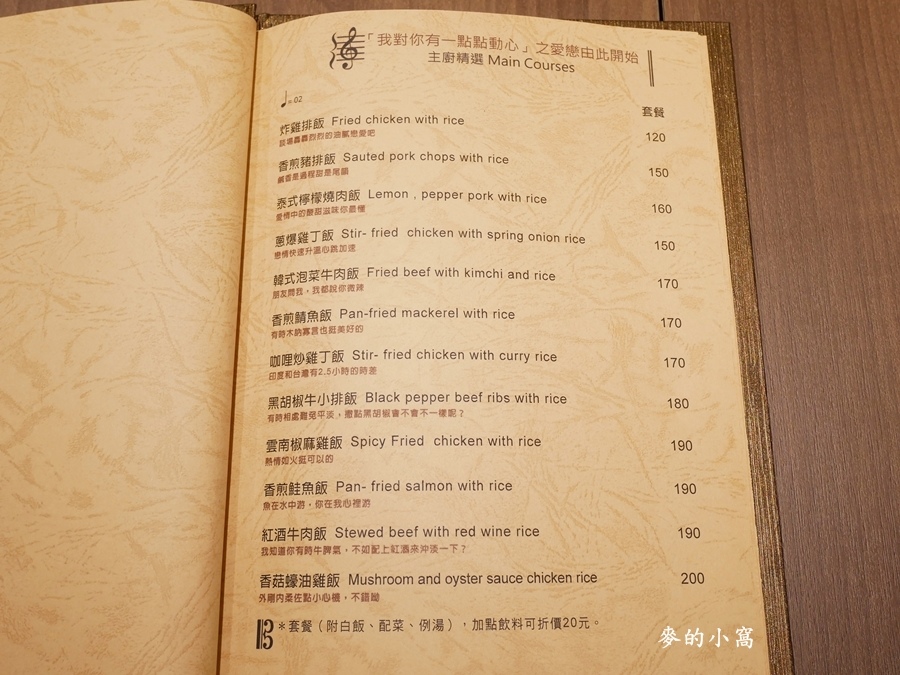 「我對你有一點點動心」之愛戀由此開始
主廚精選 Main Courses
=02
套餐
炸雞排飯 Fried chicken with rice 120
談場轟轟烈烈的油膩戀愛吧
香煎豬排飯 Sauted pork chops with rice 150
鹹香是過程甜是尾韻
泰式檸檬燒肉飯 Lemon , pepper pork with rice 160
愛情中的酸甜滋味你最懂
蔥爆雞丁飯 Stir- fried chicken with spring onion rice 150
戀情快速升溫心跳加速
韓式泡菜牛肉飯 Fried beef with kimchi and rice 170
朋友問我，我都說你微辣
香煎鯖魚飯 Pan-fried mackerel with rice 170
有時木訥寡言也挺美好的
咖哩炒雞丁飯 Stir- fried chicken with curry rice 170
印度和台灣有2.5小時的時差
黑胡椒牛小排飯 Black pepper beef ribs with rice 180
有時相處難免平淡，撒點黑胡椒會不會不一樣呢？
雲南椒麻雞飯 Spicy Fried chicken with rice 190
熱情如火挺可以的
香煎鮭魚飯 Pan- fried salmon with rice 190
魚在水中游，你在我心裡游
紅酒牛肉飯 Stewed beef with red wine rice 190
我知道你有時牛脾氣，不如配上紅酒來沖淡一下？
香菇蠔油雞飯 Mushroom and oyster sauce chicken rice 200
外剛內柔佐點小心機，不錯呦
＊套餐（附白飯、配菜、例湯），加點飲料可折價20元。
麥的小窩